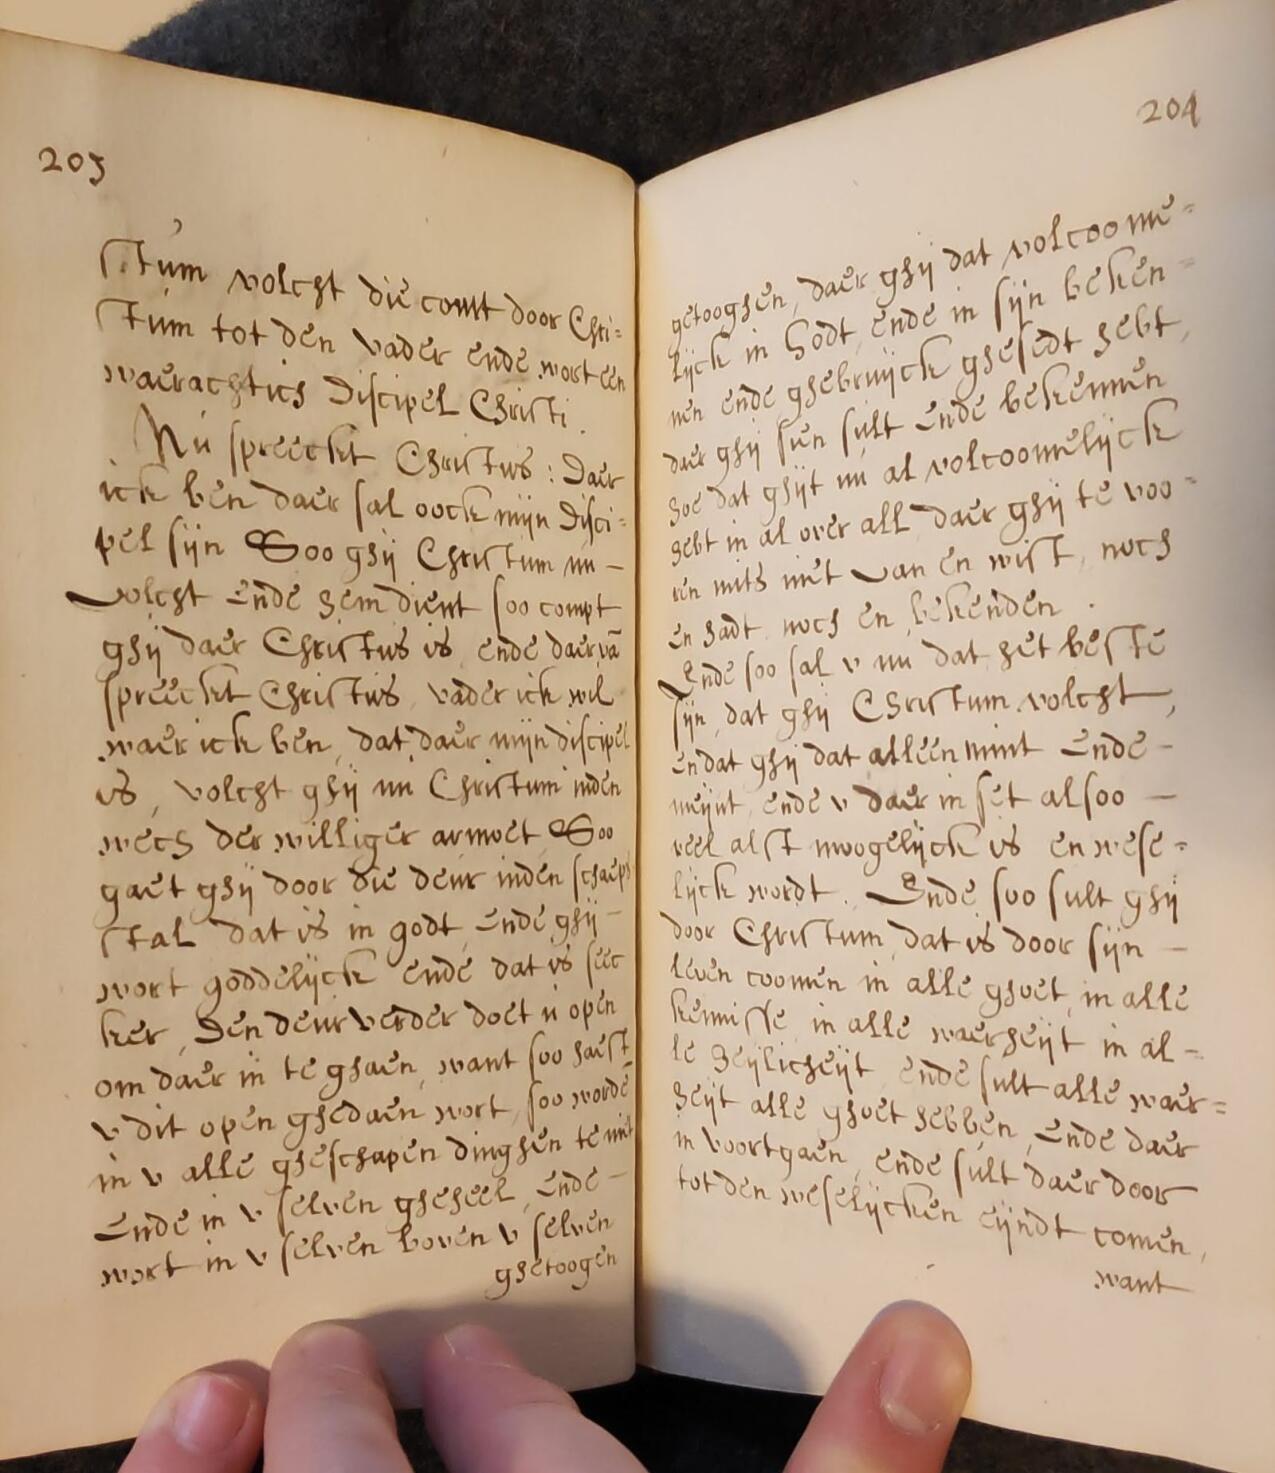 203
stum volcht die comt door Chri=
stum tot den vader ende wort een
waerachtich discipel Christi.
Nu spreeckt Christus: Daer
ick ben daer sal oock mijn disci=
pel sijn Soo ghij Christum nu –
volcht ende hem dient soo compt
ghij daer Christus is, ende daer vā
spreeckt Christus, vader ick wil
waer ick ben, dat daer mijn discipel
is, volcht ghij nu Christum inden
wech der williger armoet Soo
gaet ghij door die deur inden schaeps
stal dat is in godt, ende ghij –
wort goddelijck ende dat is seec
ker, Den deurverder doet u open
om daer in te ghaen, want soo haest
v dit open ghedaen wort, soo wordē
in v alle gheschapen dinghen te niet
Ende in v selven gheheel, ende –
wort in v selven boven v selven
ghetoogen
204
getooghen, daer ghij dat volcoome=
lijck in Godt, ende in sijn beken=
nen ende ghebruijck ghesedt hebt,
daer ghij sien sult ende bekennen
hoe dat ghijt nu al volcoomelijck
hebt in al over all daer ghij te voo=
ren mits niet van en wist, noch
en hadt noch en bekenden.
Ende soo sal v nu dat het beste
sijn, dat ghij Christum volcht,
en dat ghij dat alleen mint ende –
meijnt, ende v daer in set alsoo –
veel alst moogelijck is en wese=
lijck wordt. Ende soo sult ghij
door Christum, dat is door sijn –
leven coomen in alle ghoet, in alle
kennisse, in alle waerheijt in al=
le heijlicheijt, ende sult alle waer=
heijt alle ghoet hebben, ende daer
in voortgaen, ende sult daer door
tot den weselijcken eijndt comen,
want